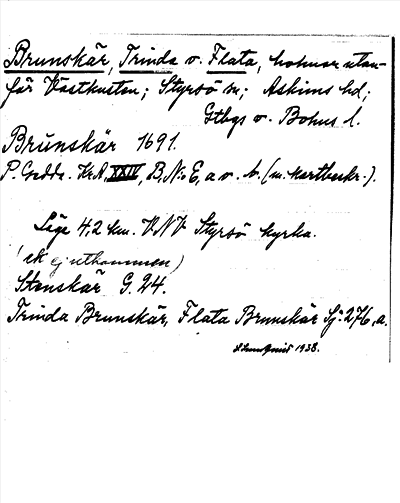 Brunskär, Trinda o. Flata, holmar utan-
för Västkusten; Styrsö sn; Askims hd;
Gtbgs o. Bohus l.
Brŭnskär 1691.
P. Gedda. Kr.A. XXIV, B, N:o E, a o. b. (m. kartbeskr.).
Läge 4,2 km. V.N.V. Styrsö kyrka.
(ek ej utkommen)
Stenskär G. 24.
Trinda Brunskär, Flata Brunskär Sj. 276, a.
1938.